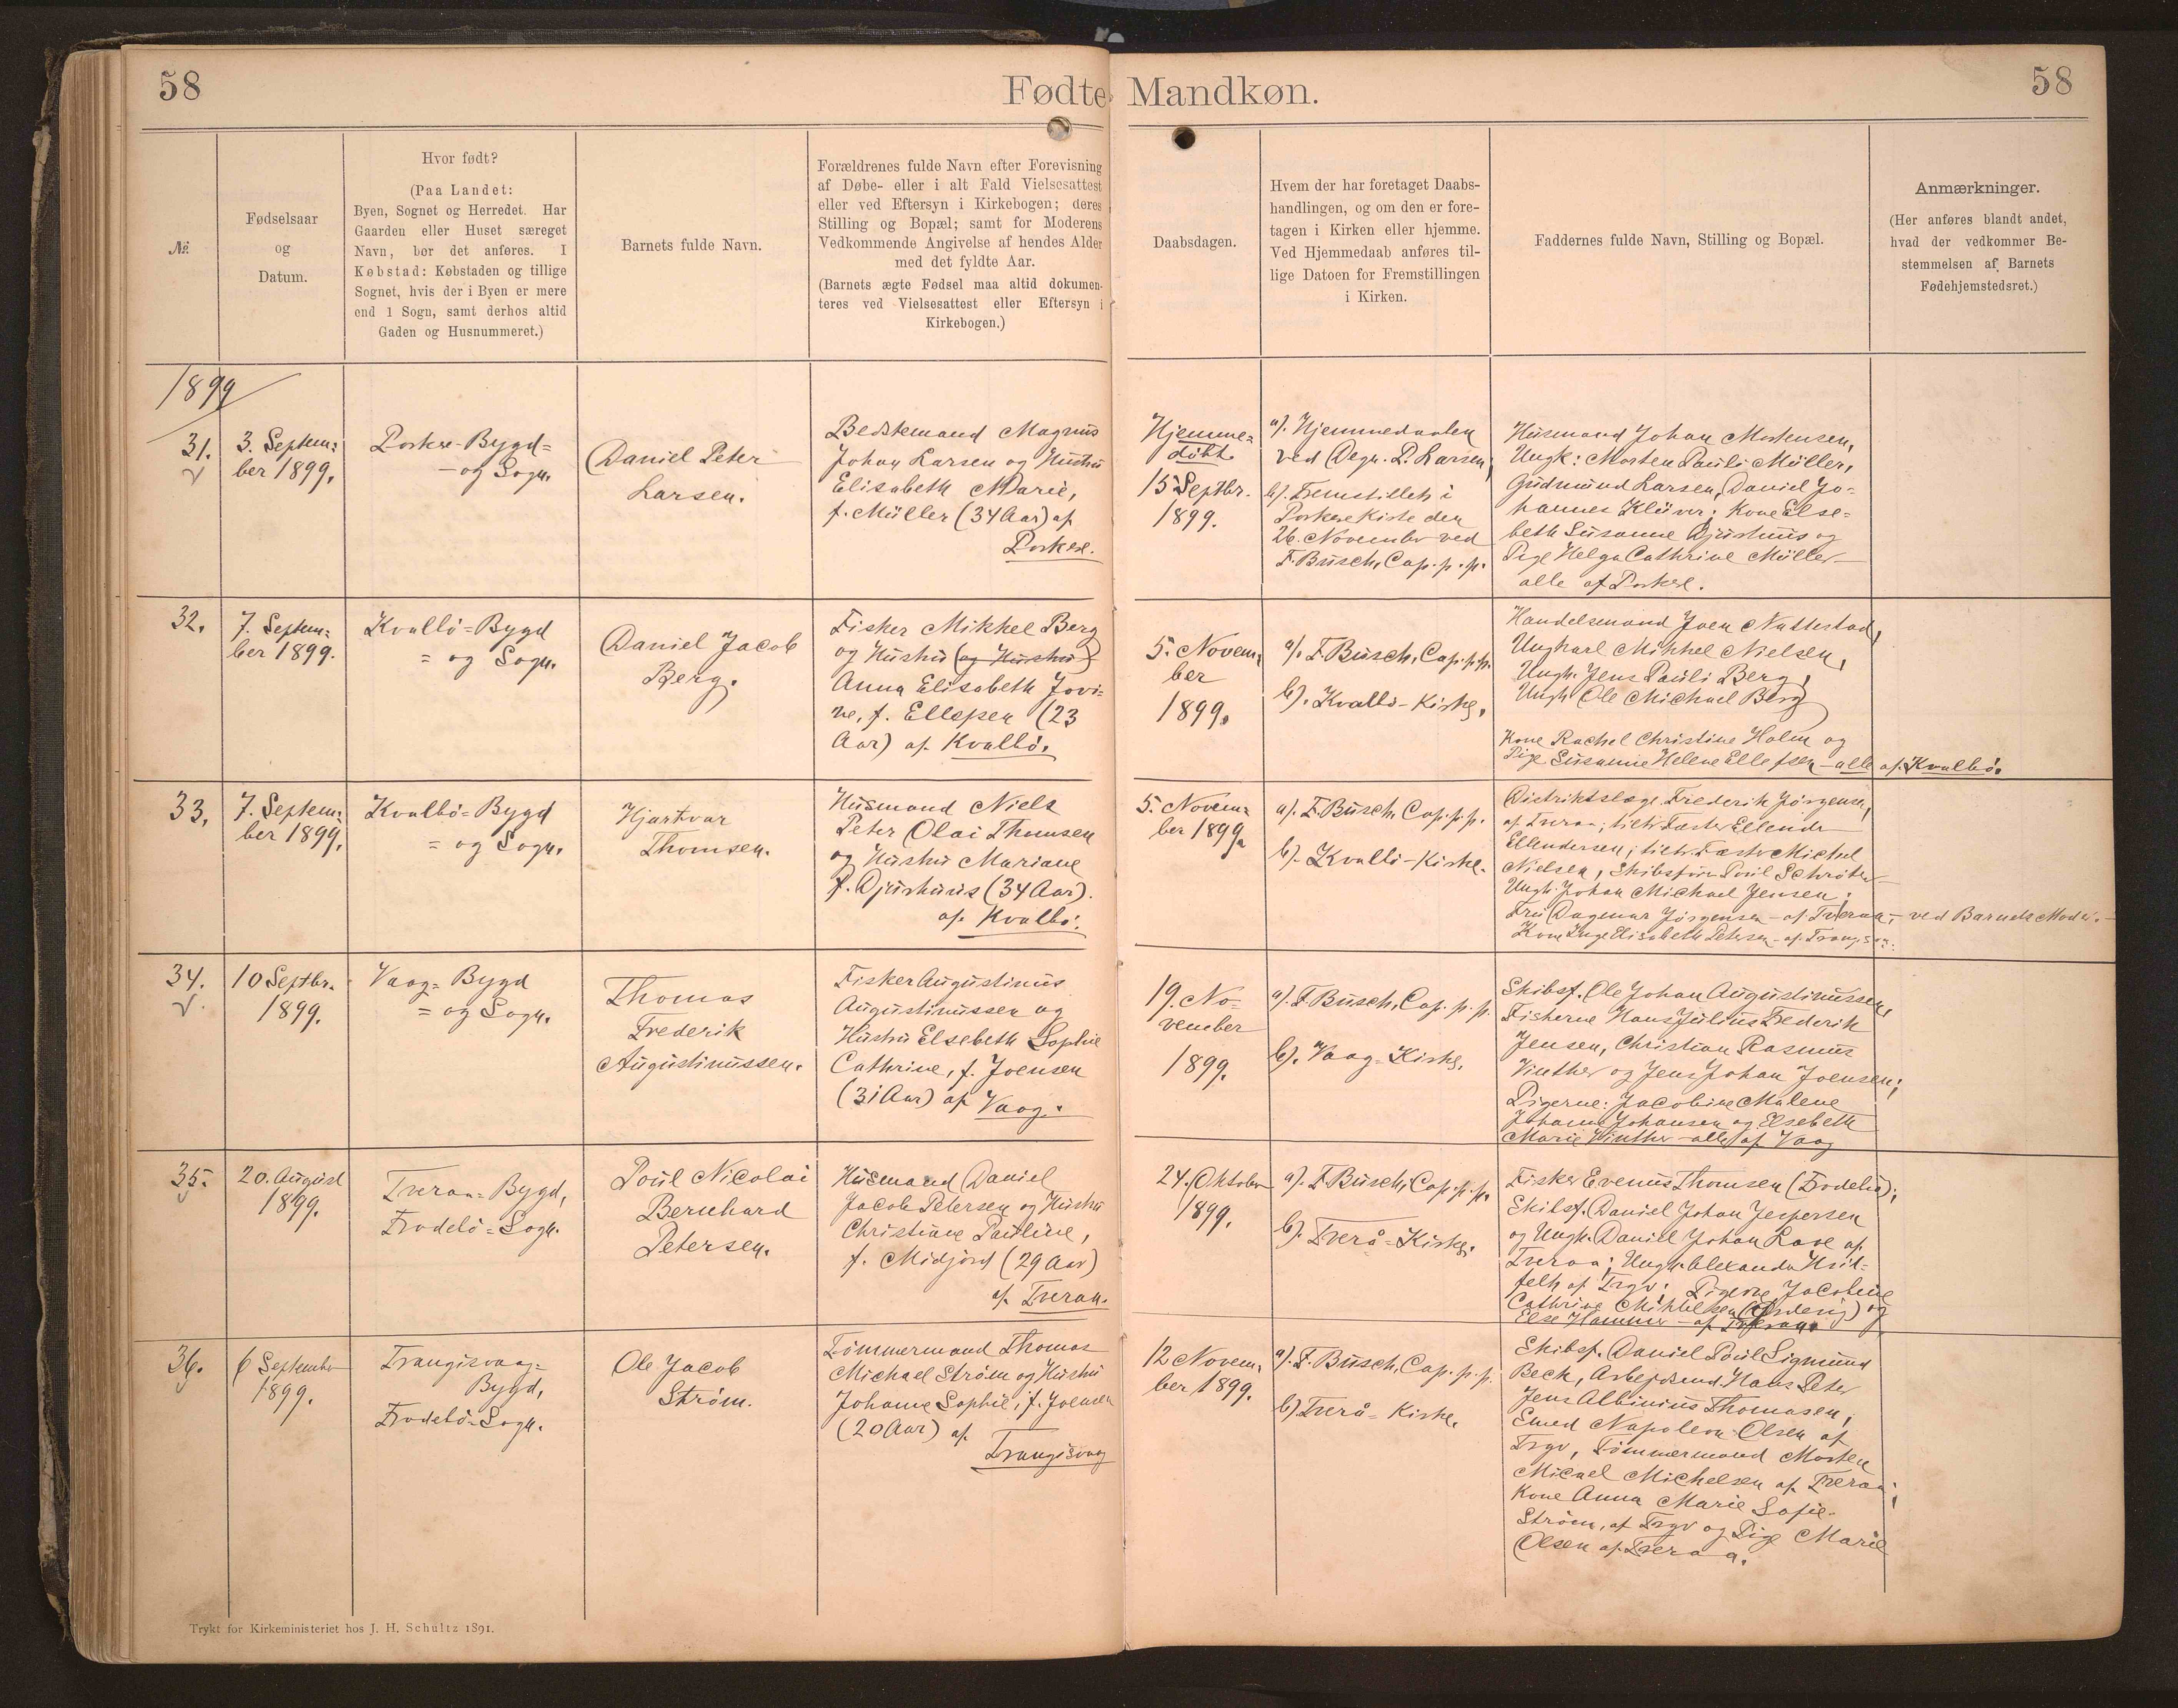 58
Fødte Mandkøn.
58
№
Fødselsaar
og
Datum.
Hvor født?
(Paa Landet:
Byen, Sognet og Herredet. Har
Gaarden eller Huset særeget
Navn, bør det anføres. I
Købstad: Købstaden og tillige
Sognet, hvis der i Byen er mere
end 1 Sogn, samt derhos altid
Gaden og Husnummeret.)
Barnets fulde Navn.
Forældrenes fulde Navn efter Forevisning
af Døbe- eller i alt Fald Vielsesattest
eller ved Eftersyn i Kirkebogen; deres
Stilling og Bopæl; samt for Moderens
Vedkommende Angivelse af hendes Alder
med det fyldte Aar.
(Barnets ægte Fødsel maa altid dokumen-
teres ved Vielsesattest eller Eftersyn i
Kirkebogen.)
Daabsdagen.
Hvem der har foretaget Daabs-
handlingen, og om den er fore-
tagen i Kirken eller hjemme.
Ved Hjemmedaab anføres til-
lige Datoen for Fremstillingen
i Kirken.
Faddernes fulde Navn, Stilling og Bopæl.
Anmærkninger.
(Her anføres blandt andet,
hvad der vedkommer Be-
stemmelsen af Barnets
Fødehjemstedsret.)
1899
31.
3. Septem-
ber 1899.
Porkere-Bygd-
- og Sogn.
Daniel Peter
Larsen.
Bedstemand Magnus
Johan Larsen og Hustru
Elisabeth Marie,
f. Müller (34 Aar) af
Porkere.
Hjemme-
døbt.
15 Septbr.
1899.
a). Hjemmedaaben
ved Degn. P. Larsen;
b). Fremstillet i
Porkere Kirke den
26. November ved
F. Busch, Cap. p. p.
Husmand Johan Mortensen,
Ungk: Morten Pauli Müller,
Gudmund Larsen, Daniel Jo-
hannes Klüver; Kone Else-
beth Susanne Djurhuus og
Pige Helga Cathrine Müller
alle af Porkere.
32.
7. Septem-
ber 1899.
Kvalbö-Bygd
= og Sogn.
Daniel Jacob
Berg.
Fisker Mikkel Berg
og Hustru (og Hustru)
Anna Elisabeth Jovi-
ne, f. Ellefsen (23
Aar) af Kvalbö.
5. Novem-
ber
1899.
a). F. Busch, Cap. p. p.
b). Kvalbö-Kirke.
Handelsmand Joen Nattestad,
Ungkarl Mikkel Nielsen,
Ungk. Jens Pauli Berg,
Ungk. Ole Michael Berg
Kone Rachel Christine Holm og
Pige Susanne Helene Ellefsen - alle af Kvalbö.
33.
7. Septem-
ber 1899.
Kvalbö-Bygd
= og Sogn.
Hjartvar
Thomsen.
Husmand Niels
Peter Olai Thomsen
og Hustru Mariane
f. Djurhuus (34 Aar).
af Kvalbö.
5. Novem-
ber 1899
a). F. Busch, Cap. p. p.
b). Kvalbö-Kirke.
Distriktslæge Frederik Jörgensen,
af Tveraa; Fæster Ellendr
Ellendersen; Fæster Michel
Nielsen, Skibsförer Poul Schröter
Ungk. Johan Michael Jensen;
Fru Dagmar Jörgensen - af Tveraa, - ved Barnets Moder. -
Kone Inge Elisabeth Petersen - af
34.
10 Septbr.
1899.
Vaag-Bygd
= og Sogn.
Thomas
Frederik
Augustinussen.
Fisker Augustinus
Augustinussen og
Hustru Elsebeth Sophie
Cathrine, f. Joensen
(31 Aar) af Vaag.
19. No-
vember
1899.
a). F. Busch, Cap. p. p.
b). Vaag-Kirke.
Skibsf. Ole Johan Augustinussen,
Fiskerne Hans Julius Frederik
Jensen, Christian Rasmus
Vinther og Jens Johan Joensen;
Pigerne: Jacobine Malene
Johanne Johansen og Elsebeth
Marie Vinther - alle af Vaag
35.
20. August
1899.
Tveraa-Bygd,
Frodebö-Sogn.
Poul Nicolai
Bernhard
Petersen.
Husmand Daniel
Jacob Petersen og Hustru
Christiane Pauline,
f. Midjord (29 Aar)
af Tveraa.
24. Oktober
1899.
a). F. Busch, Cap. p. p.
b). Tverå-Kirke.
Fisker Evenus Thomsen (Frodebö);
Skibsf. Daniel Johan Jespersen
og Ungk. Daniel Johan Lave af
Tveraa; Ungk. Alexander Huit-
feldt af Trgv; Pigerne Jacobine
Cathrine Mikkelsen og
Else Hammer - af Tveraa.
36.
6 September
1899.
Trangisvaag-
Bygd,
Frodebö-Sogn.
Ole Jacob
Ström.
Tömmermand Thomas
Michael Ström og Hustru
Johanne Sophie, f. Joensen
(20 Aar) af
Trangisvaag
12 Novem-
ber 1899.
a). F. Busch, Cap. p. p.
b) Tverå-Kirke.
Skibsf. Daniel Poul Sigmund
Beck, Arbejdsmd. Hans Peter
Jens Albinius Thomasen,
Smed Napoleon Olsen af
Trgv, Tömmermand Morten
Micael Michelsen af Tveraa;
Kone Anna Marie Sofie
Ström, af Trgv og Pige Marie
Olsen af Tveraa.
Trykt for Kirkeministeriet hos J. H. Schultz 1891.